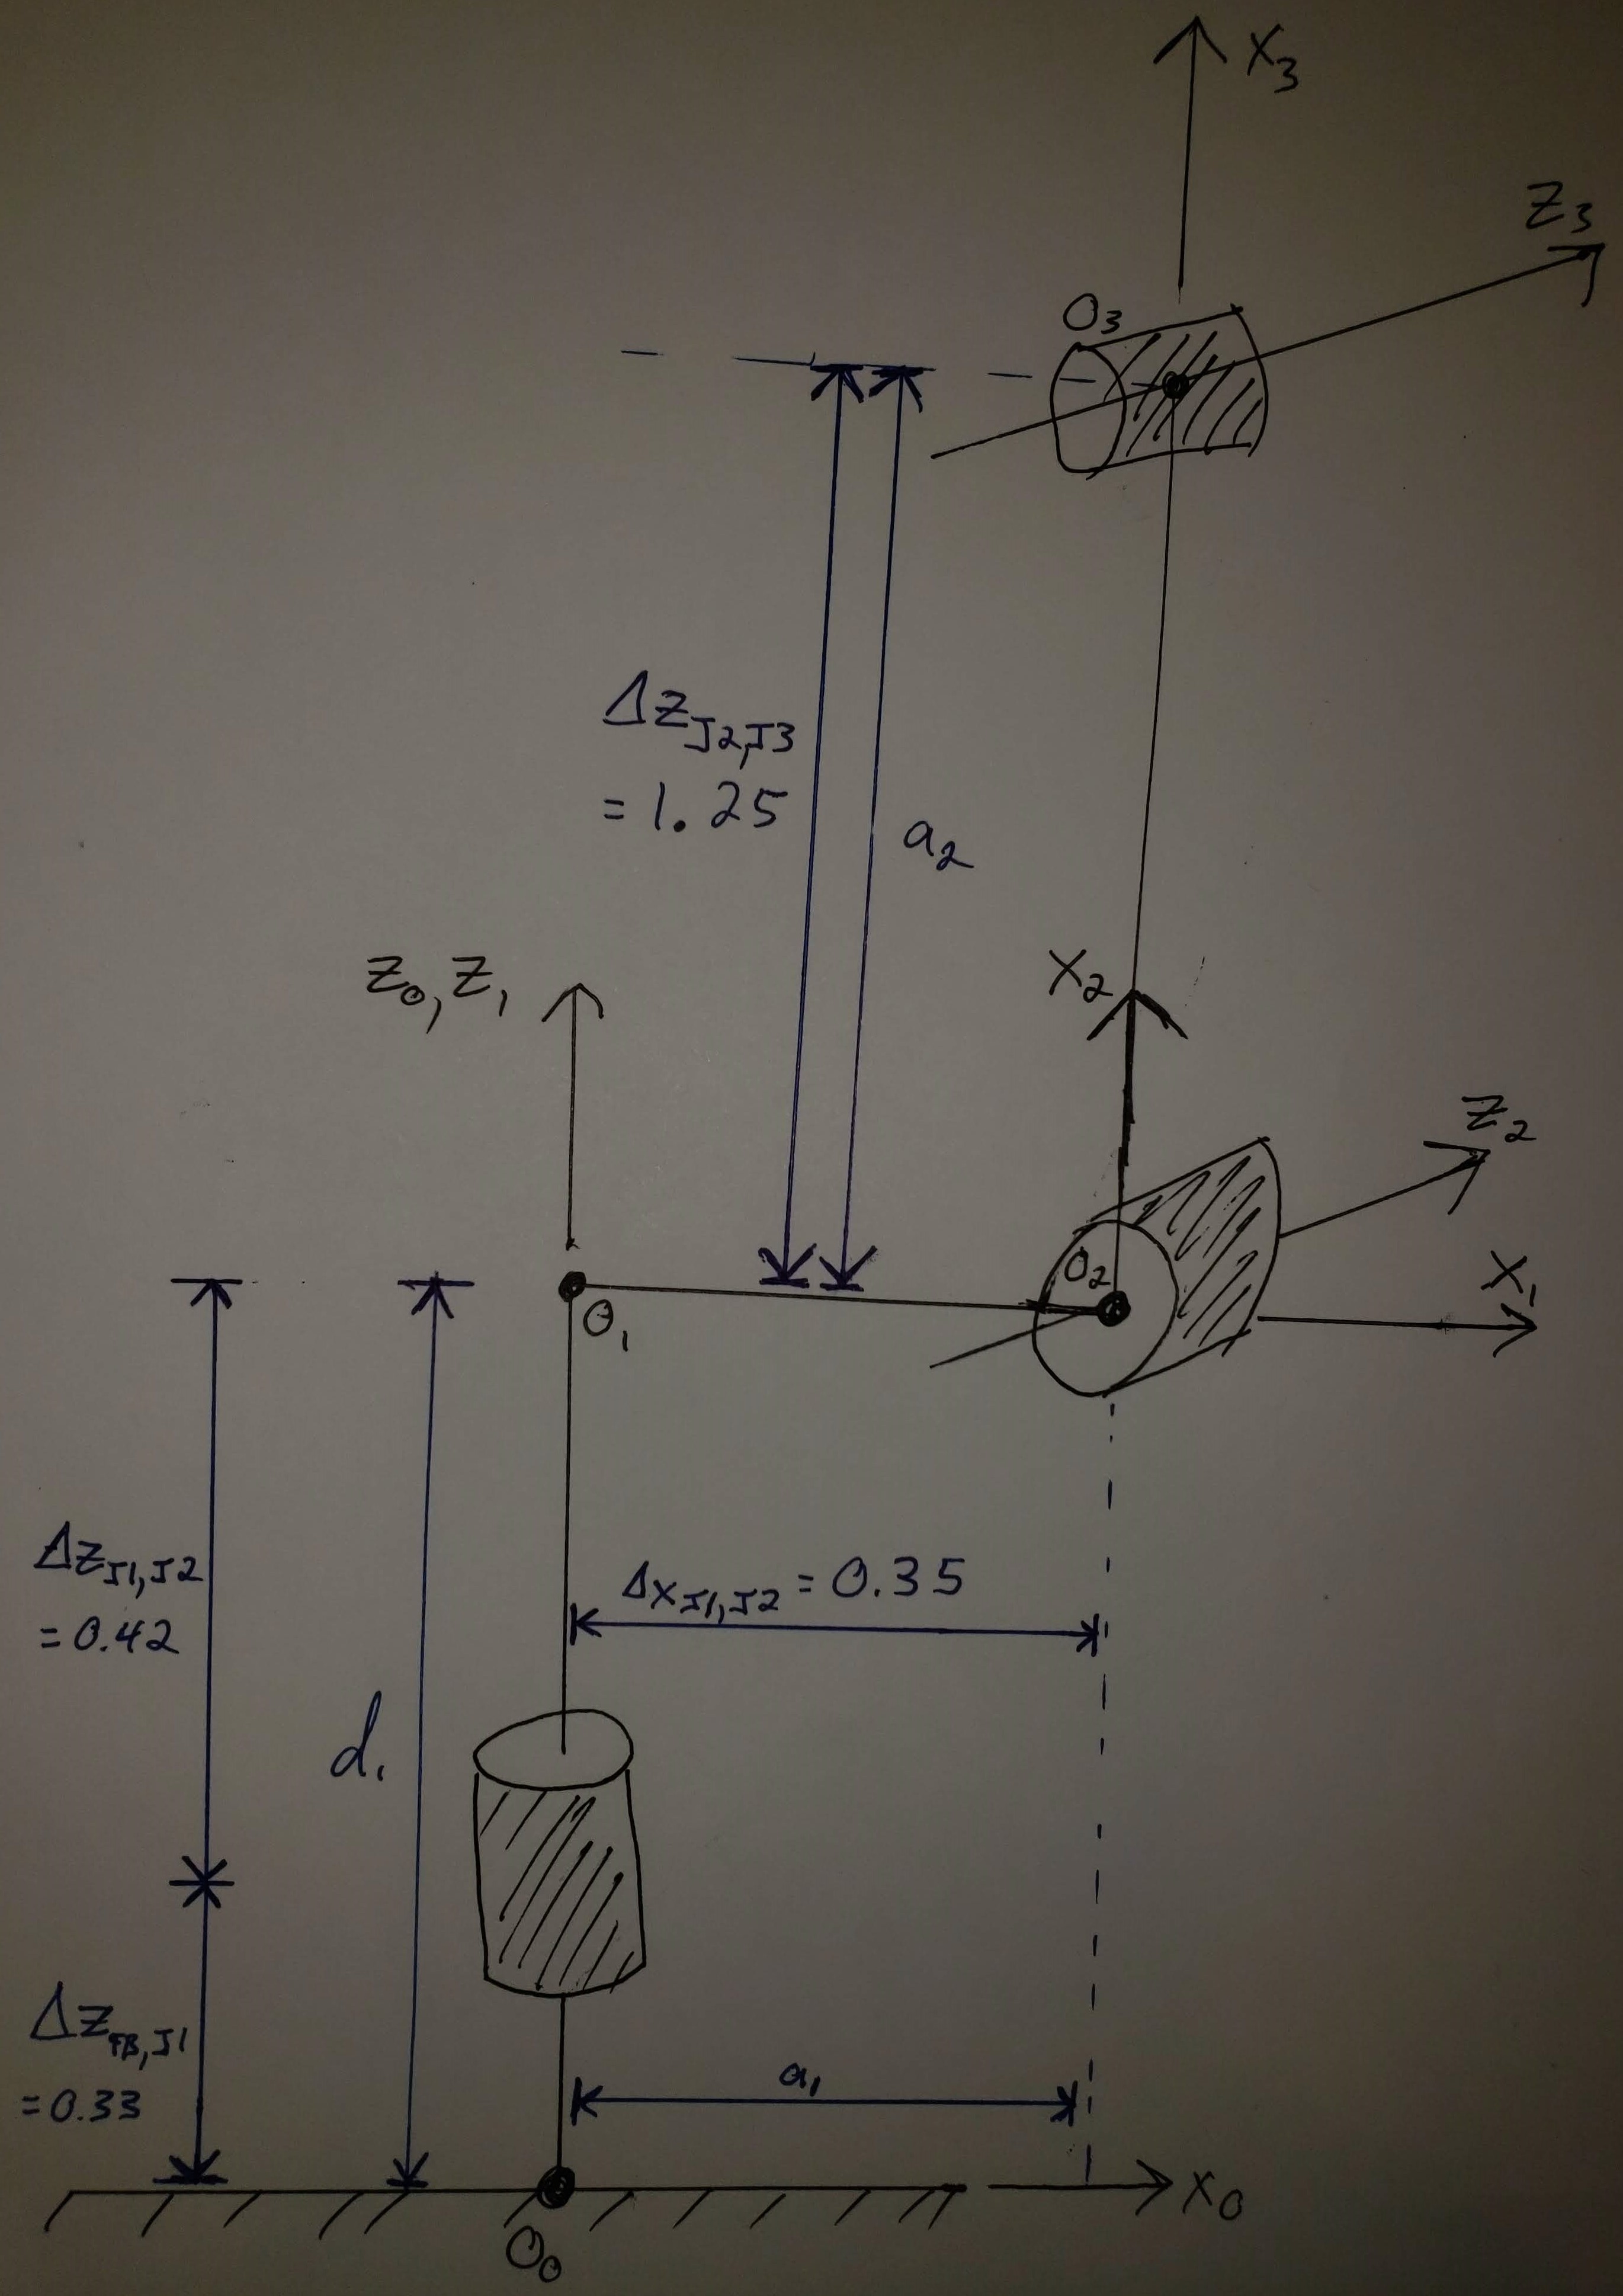 X₃
Z₃
O₃
Δz_J2,J3
= 1.25
a₂
Z₀, Z₁
X₂
Z₂
O₂
X₁
O₁
Δz_J1,J2
= 0.42
Δx_J1,J2 = 0.35
d₁
Δz_FB,J1
= 0.33
a₁
X₀
O₀